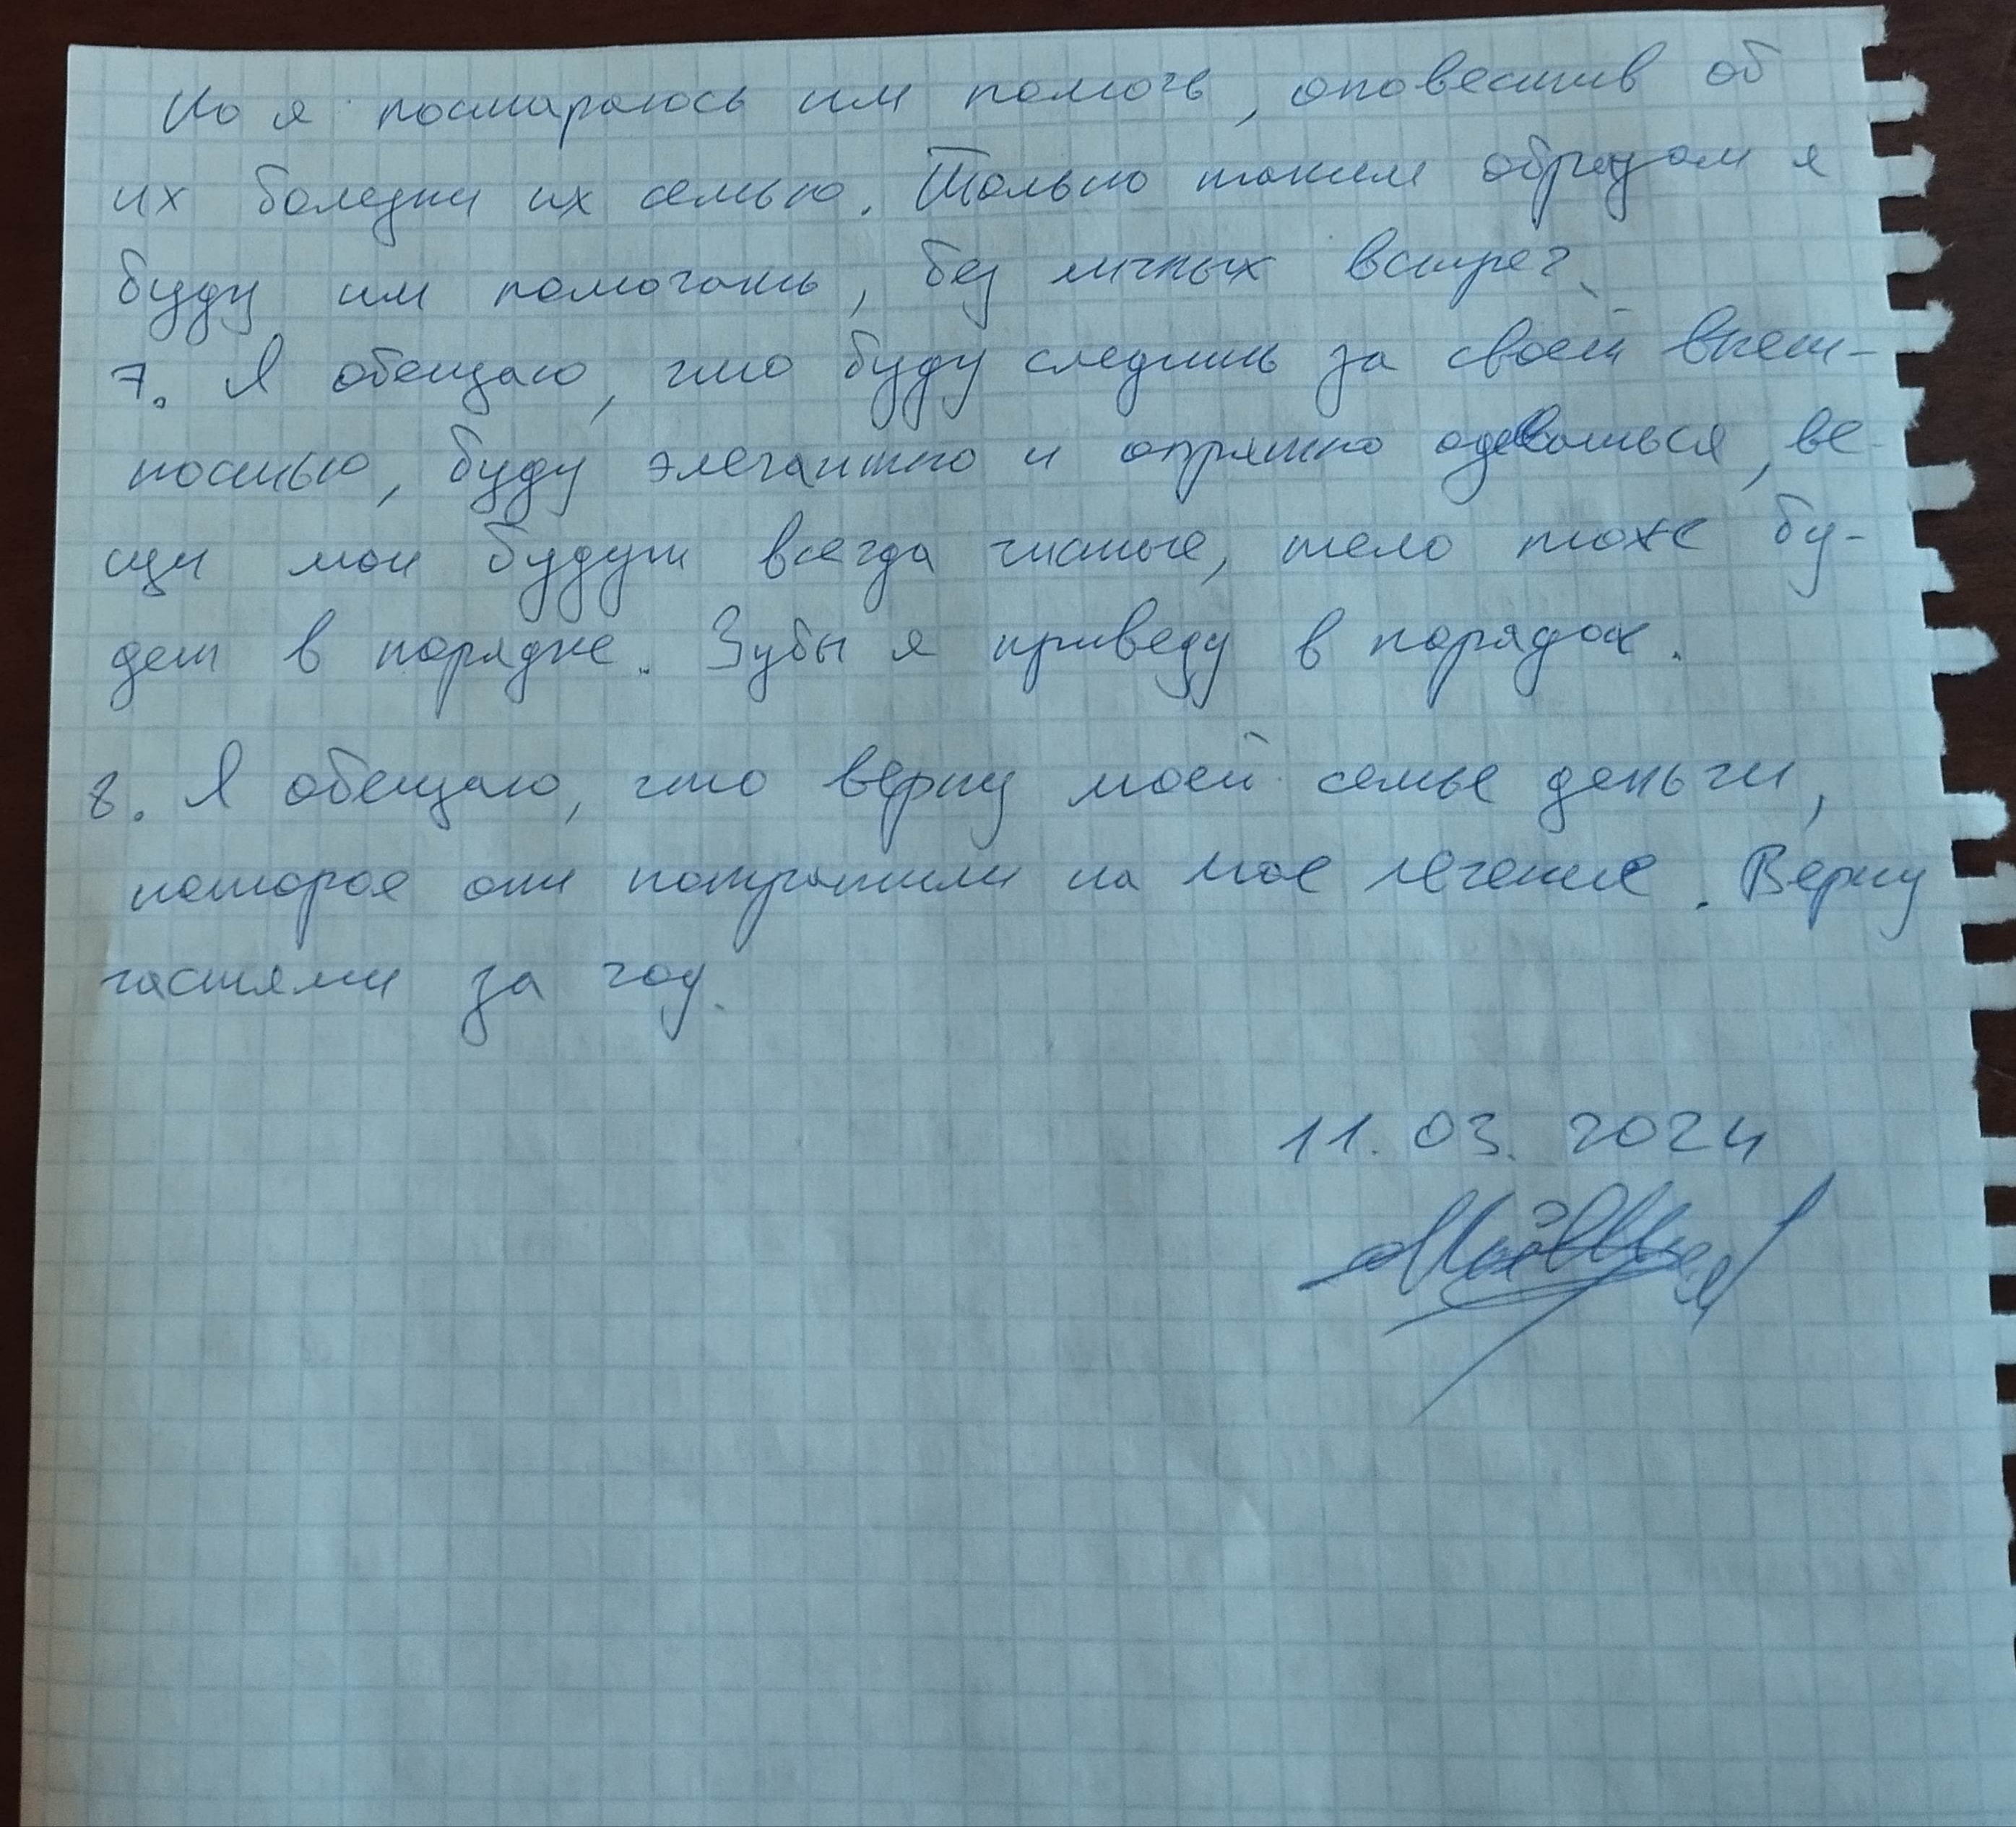 Но я постараюсь им помочь, оповестив об
их болезни их семью. Только таким образом я
буду им помогать, без личных встреч.
7. Я обещаю, что буду следить за своей внеш-
ностью, буду элегантно и опрятно одеваться, ве-
щи мои будут всегда чистые, тело тоже бу-
дет в порядке. Зубы я приведу в порядок.
8. Я обещаю, что верну моей семье деньги,
которое они потратили на мое лечение. Верну
частями за год.
11.03.2024